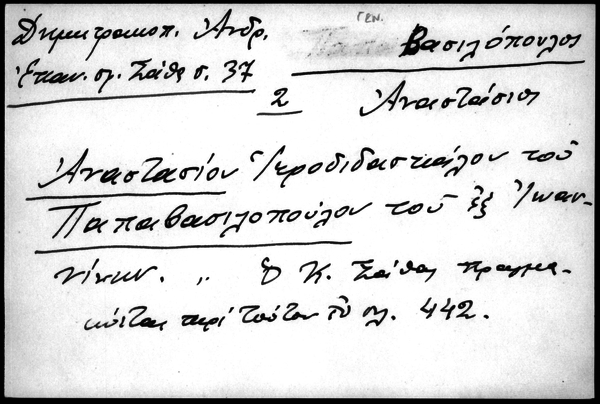 Δημητρακοπ. Ἀνδρ.
Ἐπαν. σφ. Σάθα σ. 37
ΓΕΝ.
Βασιλόπουλος
2 Ἀναστάσιος
Ἀναστασίου Ἱεροδιδασκάλου τοῦ
Παπαβασιλοπούλου τοῦ ἐξ Ἰωαν-
νίνων. „ Ὁ Κ. Σάθας πραγμα-
τεύεται περὶ τούτου ἐν σελ. 442.